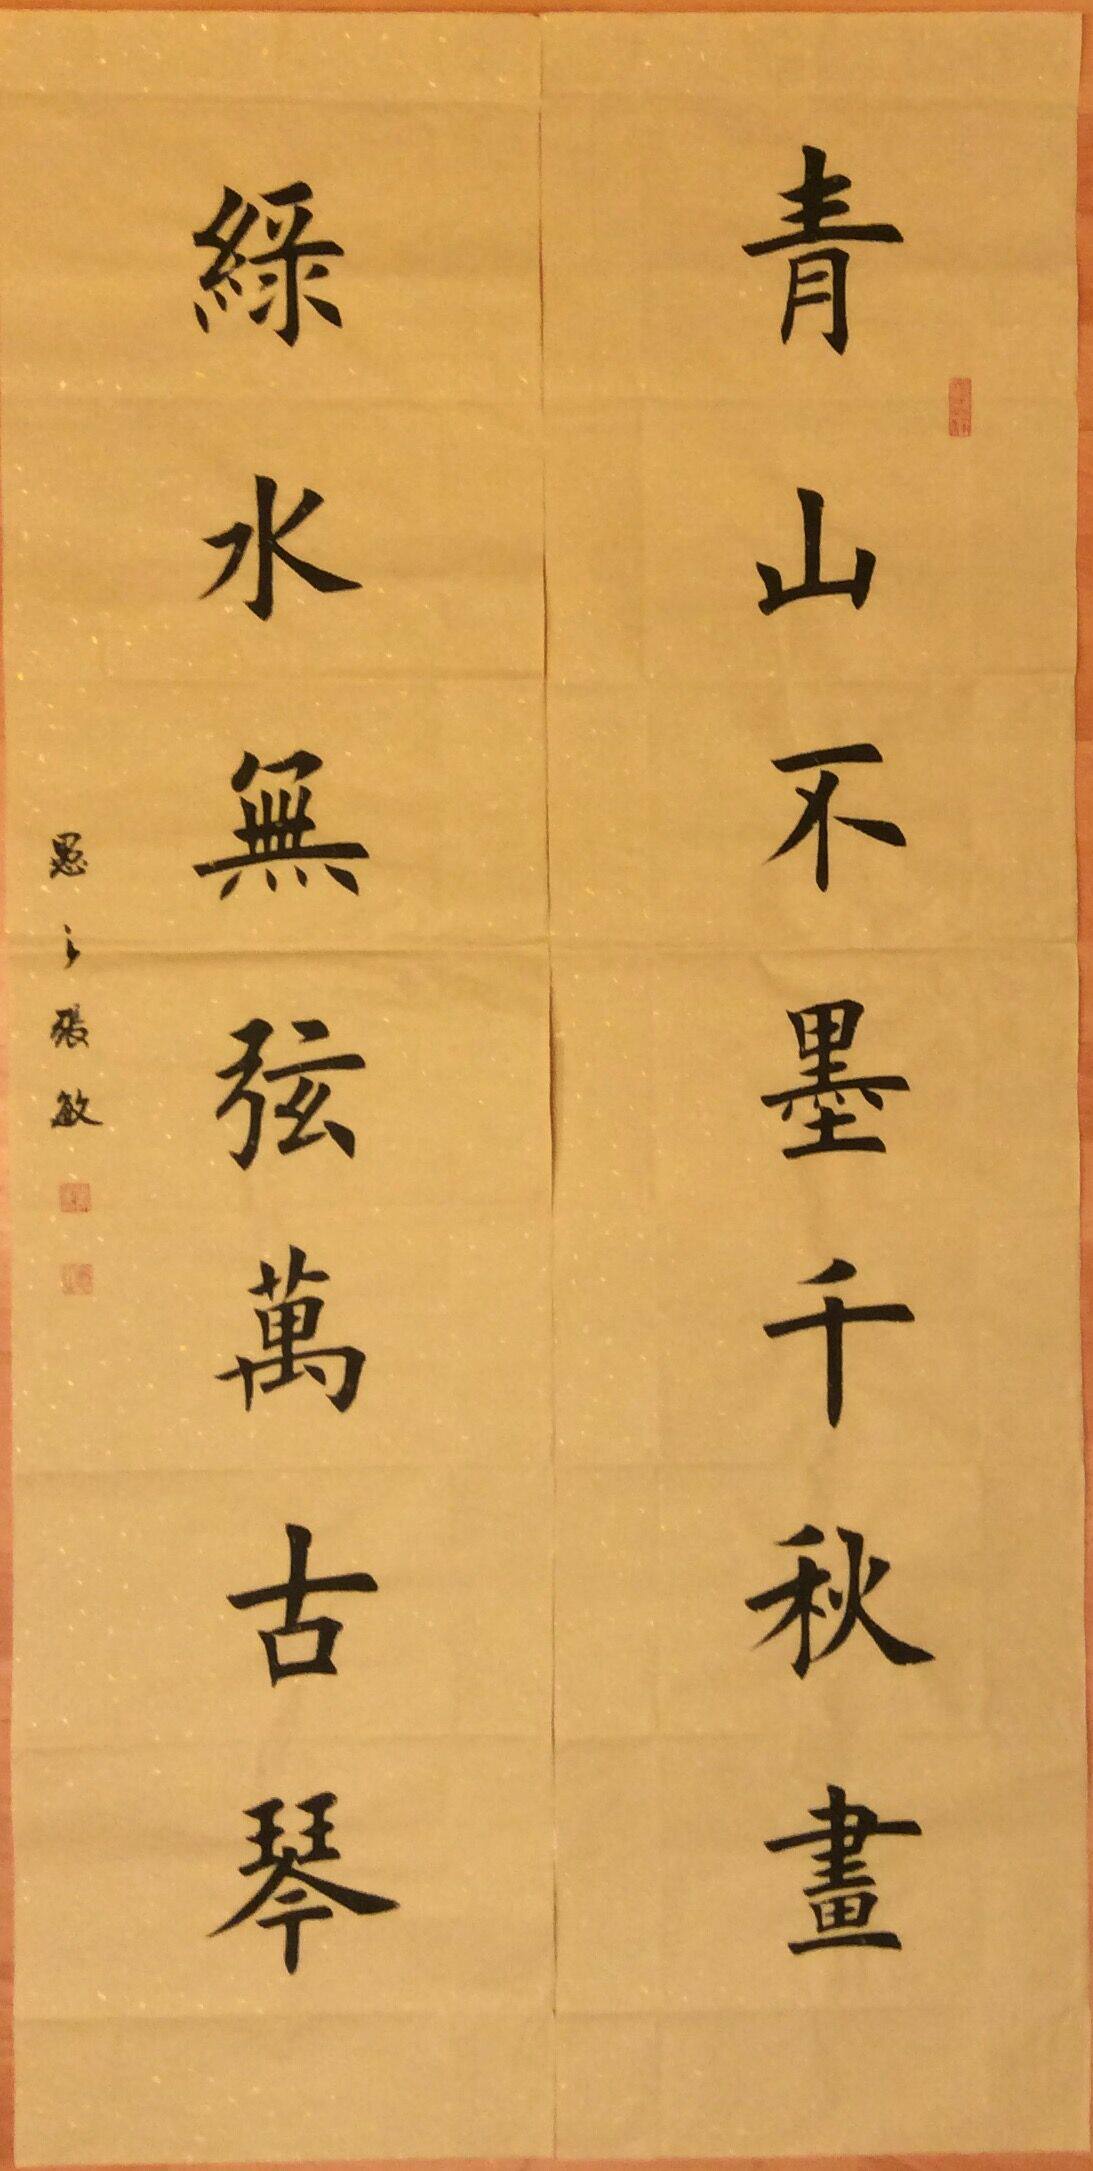 青山不墨千秋畫
綠水無弦萬古琴
愚之張敏